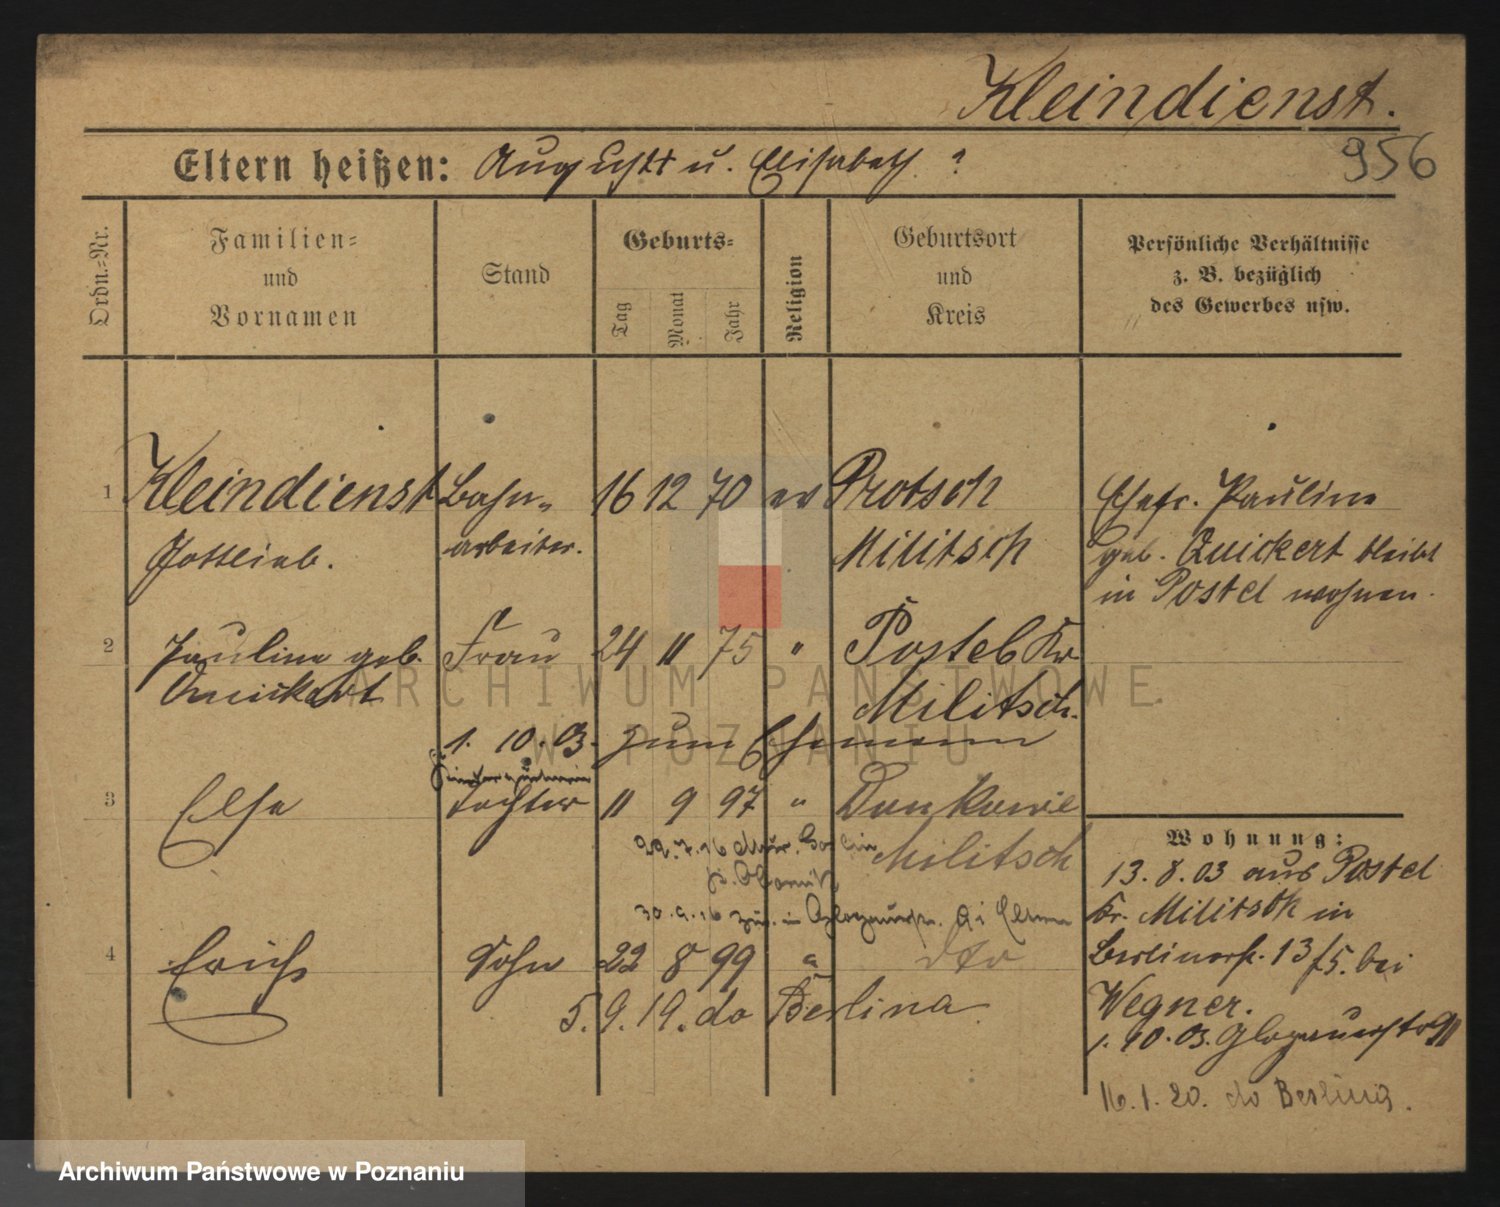 Kleindienst.
956
Eltern heißen: August u. Elisabeth ?
Ordn.-Nr.
Familien- und Vornamen
Stand
Geburts-
Tag Monat Jahr
Religion
Geburtsort und Kreis
Persönliche Verhältnisse z. B. bezüglich des Gewerbes usw.
1 Kleindienst Bahn- 16 12 70 ev Protsch
Gottlieb. arbeiter. Militsch
Ehefr. Pauline
geb. Quickert bleibt
in Postel wohnen.
2 Pauline geb. Frau 24 11 75 " Postel Kr
Quickert Militsch.
1. 10. 03. zum Ehemann
3 Else Tochter 11 9 97 " Militsch
22.7.16 Mur. Goslin
30.9.16 zur. in Glogauerstr. 91 Eltern
4 Erich Sohn 22 8 99 " dto
5.9.19. do Berlina
Wohnung:
13.8.03 aus Postel
Kr. Militsch in
Berlinerstr. 13 bei
Wegner.
1.10.03. Glogauerstr 91
16.1.20. do Berlina.
ARCHIWUM PAŃSTWOWE
W POZNANIU
Archiwum Państwowe w Poznaniu